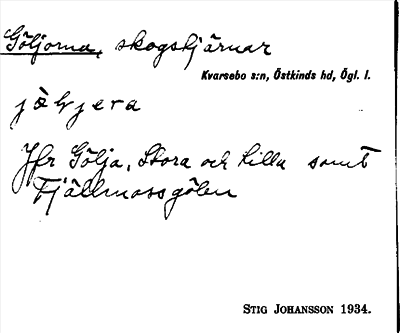 Göljorna, skogstjärnar
Kvarsebo s:n, Östkinds hd, Ögl. l.
Jfr Gölja, Stora och Lilla samt
Fjällmossgölen
STIG JOHANSSON 1934.